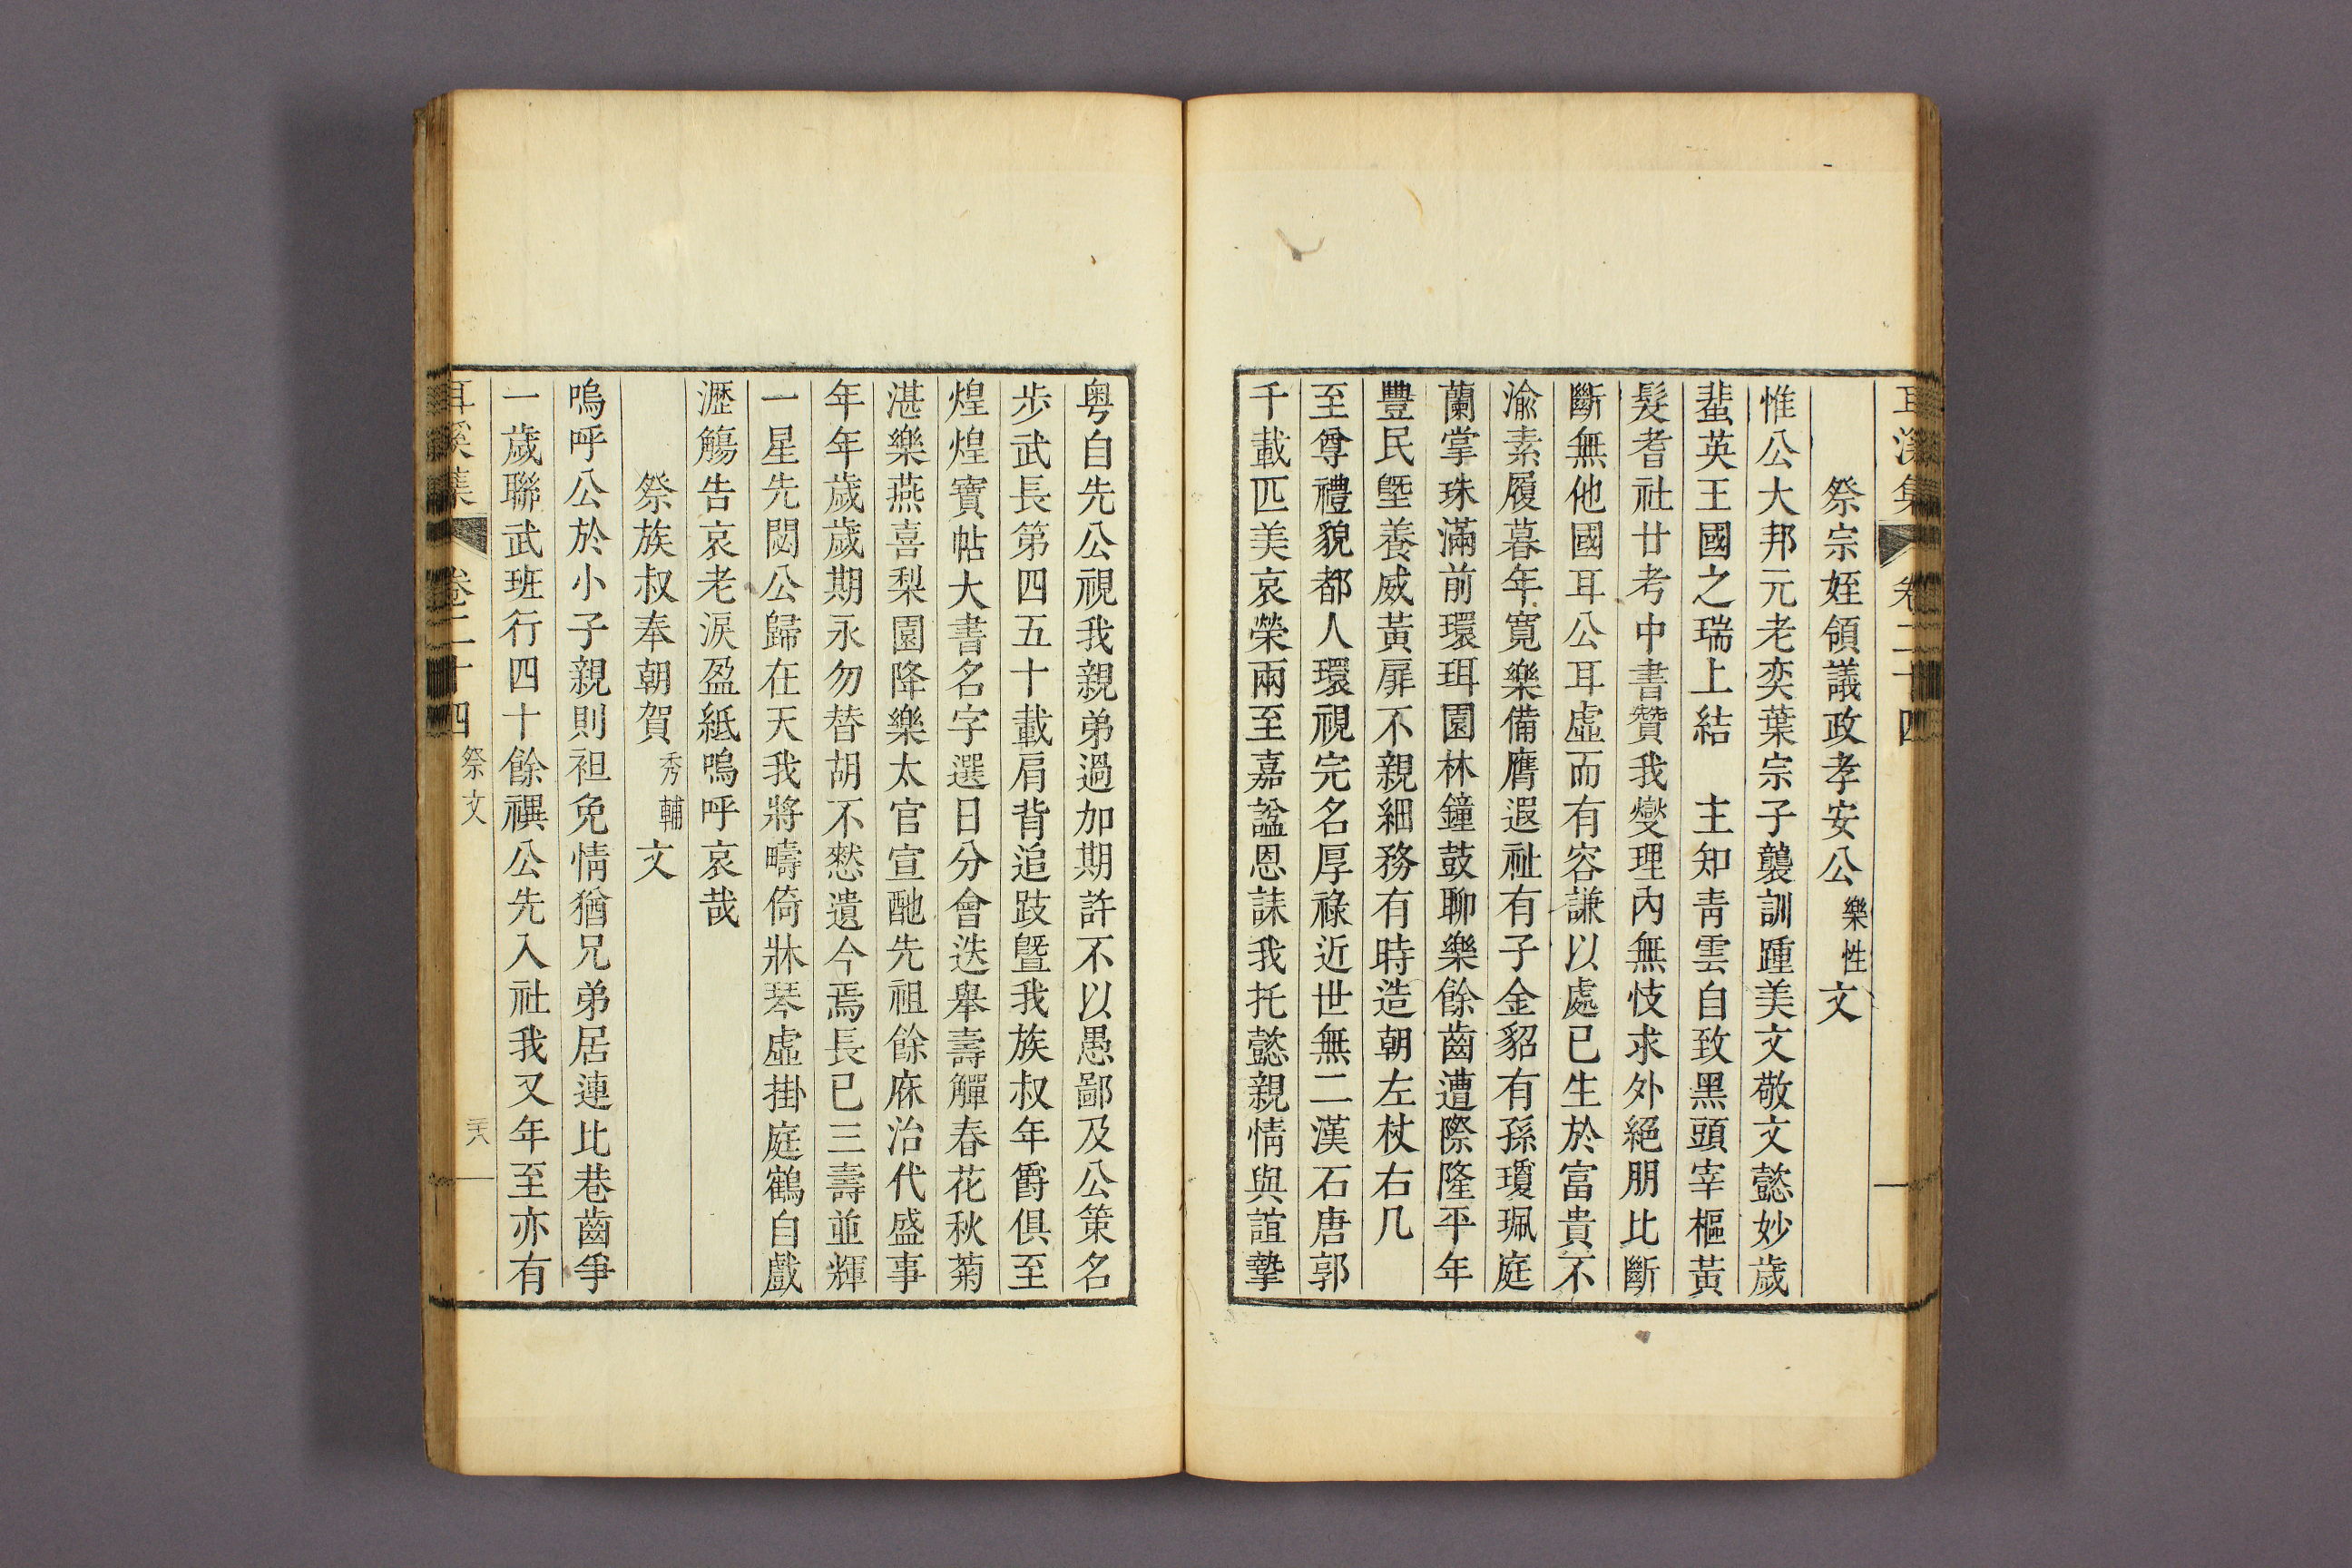 耳溪集 卷二十四
祭宗姪領議政孝安公樂性文
惟公大邦元老奕葉宗子襲訓踵美文敬文懿妙歲
蜚英王國之瑞上結 主知靑雲自致黑頭宰樞黃
髮耆社廿考中書贊我燮理內無忮求外絕朋比斷
斷無他國耳公耳虛而有容謙以處已生於富貴不
渝素履暮年寬樂備膺遐祉有子金貂有孫瓊珮庭
蘭掌珠滿前環珥園林鐘鼓聊樂餘齒遭際隆平年
豐民曁養威黃扉不親細務有時造朝左杖右几
至尊禮貌都人環視完名厚祿近世無二漢石唐郭
千載匹美哀榮兩至嘉諡恩誄我托懿親情與誼摯
粤自先公視我親弟過加期許不以愚鄙及公策名
步武長第四五十載肩背追跂曁我族叔年爵俱至
煌煌寶帖大書名字選日分會迭舉壽觶春花秋菊
湛樂燕喜梨園降樂太官宣酏先祖餘庥治代盛事
年年歲歲期永勿替胡不憖遺今焉長已三壽並輝
一星先閟公歸在天我將疇倚牀琴虛掛庭鶴自戲
瀝觴告哀老淚盈紙嗚呼哀哉
祭族叔奉朝賀秀輔文
嗚呼公於小子親則袒免情猶兄弟居連比巷齒爭
一歲聯武班行四十餘禩公先入社我又年至亦有
耳溪集 卷二十四 祭文 三十八